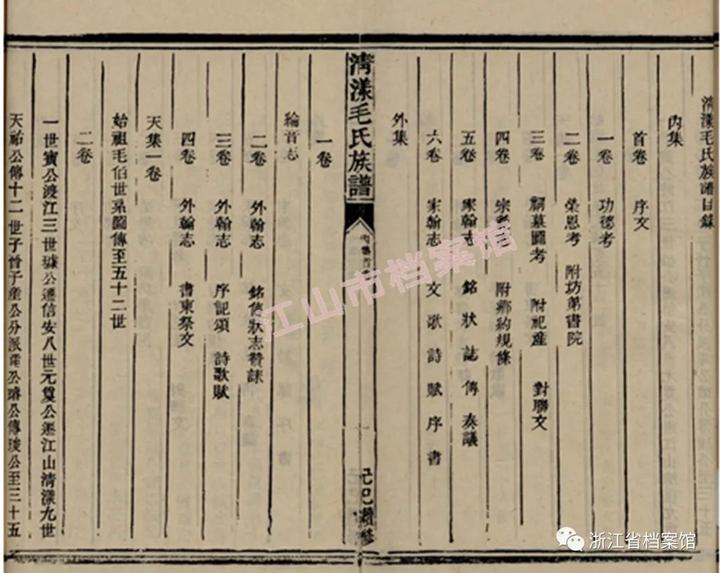 清漾毛氏族譜目錄
內集
首卷 序文
一卷 功德考
二卷 榮恩考 附坊第書院
三卷 祠墓圖考 附祀產 對聯文
四卷 宗 附鄉約規條
五卷 家翰志 銘狀誌傳奏議
六卷 家翰志 文歌詩賦序書
外集
清漾毛氏族譜
己巳續修
一卷
綸音志
二卷 外翰志 銘傳狀志贊誄
三卷 外翰志 序記頌詩歌賦
四卷 外翰志 書柬祭文
天集一卷
始祖毛伯世系圖傳至五十二世
二卷
一世寶公渡江三世璩公遷信安八世元瓊公遷江山清漾九世
天祐公傳十二世子晉子產公分派 公璿公傳琰公至三十五
江山市档案馆
浙江省档案馆